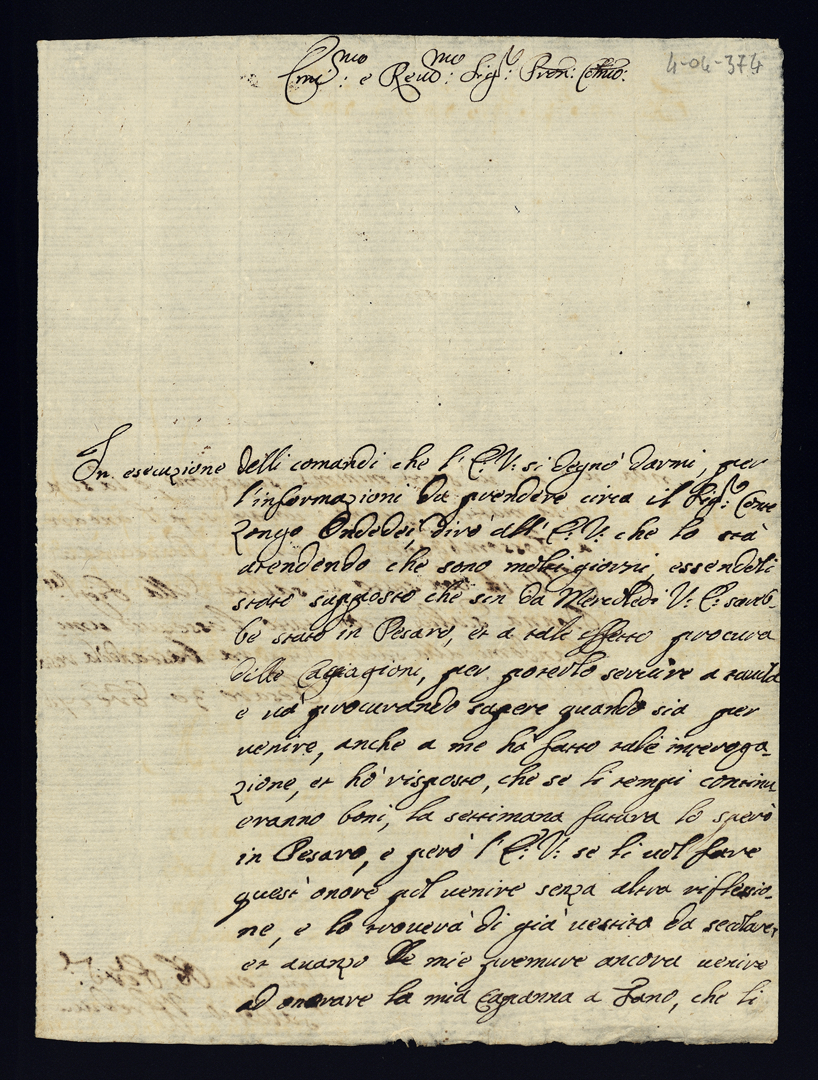 4-04-374
Emi:mo e Reud:mo Sig:r Pren: Colmo:
In esecuzione delli comandi che l'E: V: si degnò darmi, per
l'informazioni da prendere circa il Sig:r Conte
Zongo Ondedei dirò all'E: V: che lo stà
atendendo che sono molti giorni, essendoli
stato supposto che sin da Mercoledì V: E: sareb-
be stato in Pesaro, et a tale effetto procura
delle Cacciagioni, per poterlo seruire a tauola
e uà procurando sapere quando sia per
uenire, anche a me hà fatto tale interoga-
zione, et hò risposto, che se li tempi continu
eranno boni, la settimana futura lo sperò
in Pesaro, e però l'E: V: se li uol fare
quest'onore può uenire senza altra riflessio-
ne, e lo trouerà di già uestito da secolare,
et auanzo le mie premure ancora uenire
ad onorare la mia Capanna a Fano, che li